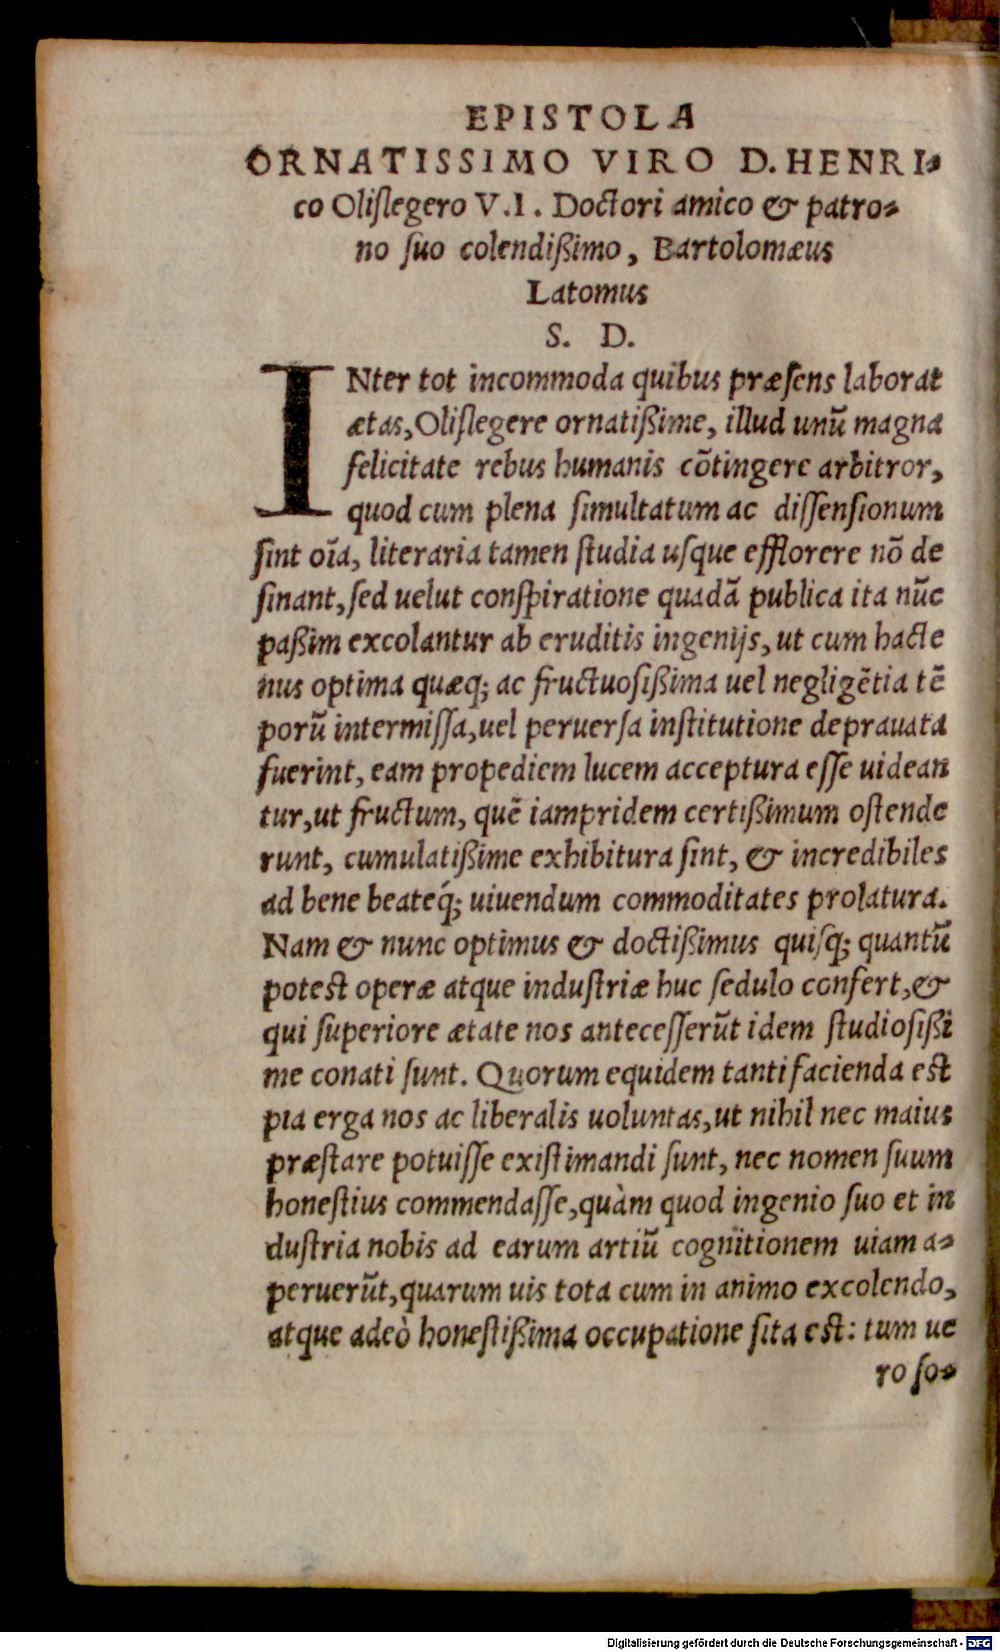 EPISTOLA
ORNATISSIMO VIRO D. HENRI-
co Oliſlegero V.I. Doctori amico & patro-
no ſuo colendißimo, Bartolomæus
Latomus
S. D.
INter tot incommoda quibus præſens laborat
ætas, Oliſlegere ornatißime, illud unũ magna
felicitate rebus humanis cõtingere arbitror,
quod cum plena ſimultatum ac diſſenſionum
ſint oĩa, literaria tamen ſtudia uſque efflorere nõ de
ſinant, ſed uelut conſpiratione quadã publica ita nũc
paßim excolantur ab eruditis ingenijs, ut cum hacte
nus optima quæq; ac fructuoſißima uel negligẽtia tẽ
porũ intermiſſa, uel peruerſa inſtitutione deprauata
fuerint, eam propediem lucem acceptura eſſe uidean
tur, ut fructum, quẽ iampridem certißimum oſtende
runt, cumulatißime exhibitura ſint, & incredibiles
ad bene beateq́; uiuendum commoditates prolatura.
Nam & nunc optimus & doctißimus quiſq; quantũ
poteſt operæ atque induſtriæ huc ſedulo confert, &
qui ſuperiore ætate nos anteceſſerũt idem ſtudioſißi
me conati ſunt. Quorum equidem tanti facienda eſt
pia erga nos ac liberalis uoluntas, ut nihil nec maius
præſtare potuiſſe exiſtimandi ſunt, nec nomen ſuum
honeſtius commendaſſe, quàm quod ingenio ſuo et in
duſtria nobis ad earum artiũ cognitionem uiam a-
peruerũt, quarum uis tota cum in animo excolendo,
atque adeò honeſtißima occupatione ſita eſt: tum ue
ro ſo-
Digitalisierung gefördert durch die Deutsche Forschungsgemeinschaft - DFG